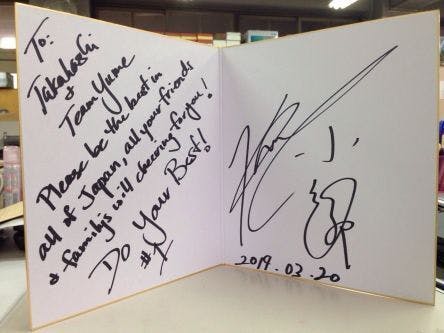 To:
Takahashi
&
Team Yume
Please be the best in
all of Japan, all your friends
& family's will cheering for you!
Do Your Best!
#1
2019.03.20